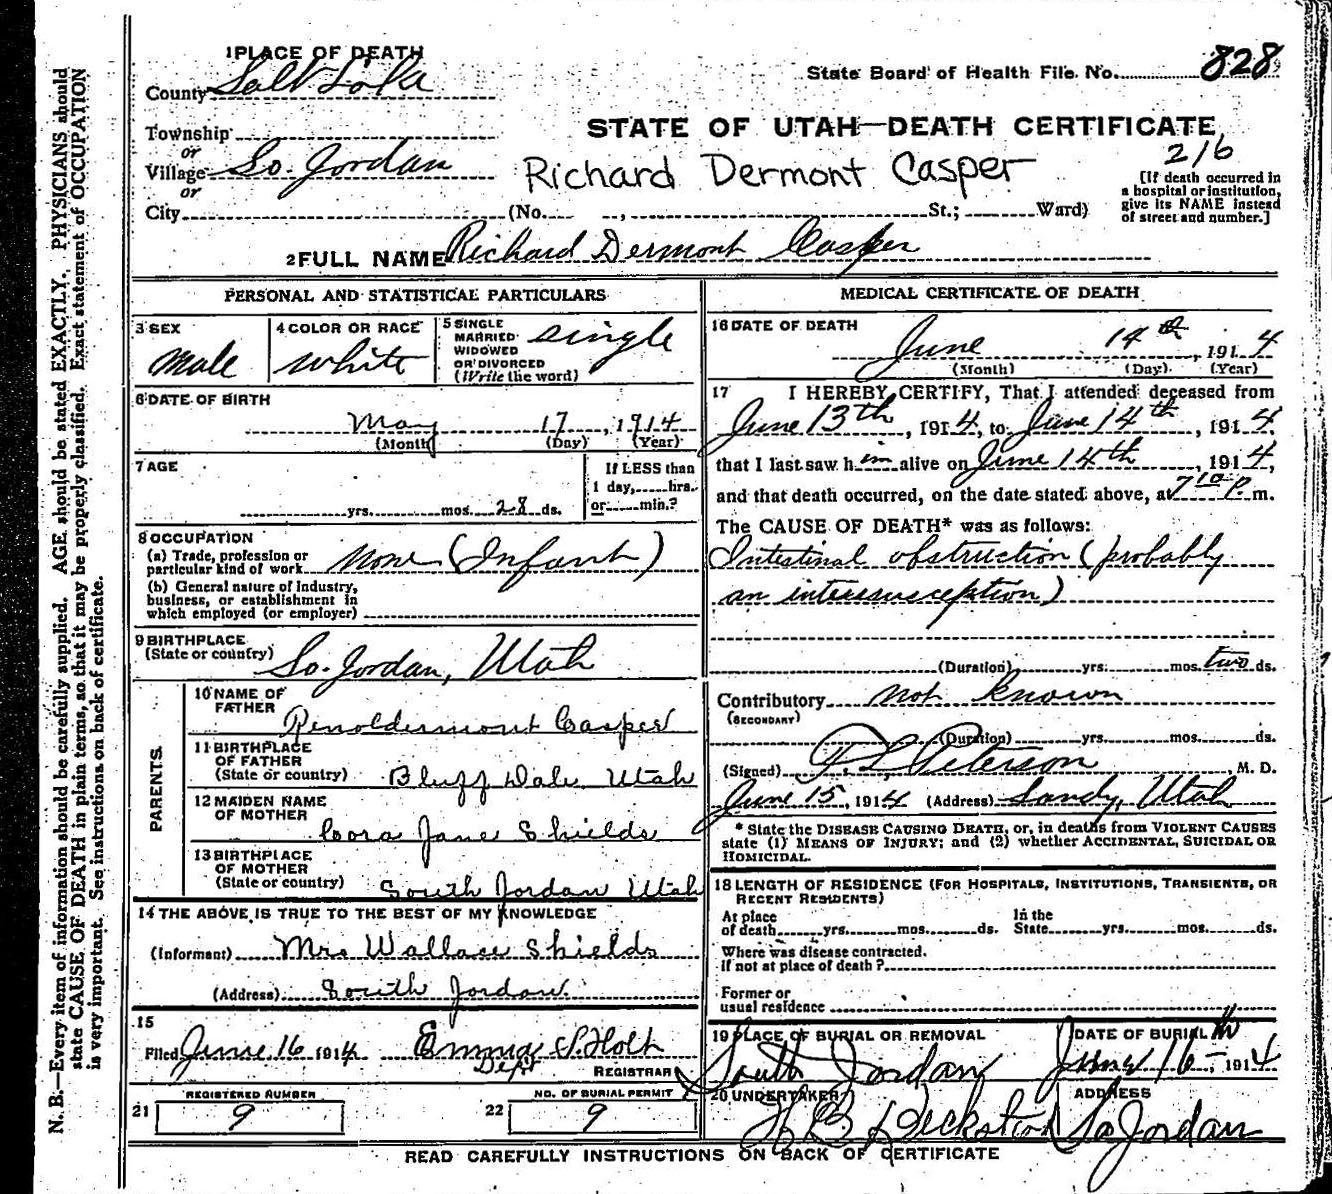 1 PLACE OF DEATH
State Board of Health File No. 828
County Salt Lake
STATE OF UTAH—DEATH CERTIFICATE
216
Township
or
Village So. Jordan
Richard Dermont Casper
or
[If death occurred in
a hospital or institution,
give its NAME instead
of street and number.]
City (No. , St.; Ward)
2 FULL NAME Richard Dermont Casper
PERSONAL AND STATISTICAL PARTICULARS
3 SEX
male
4 COLOR OR RACE
white
5 SINGLE
MARRIED
WIDOWED
OR DIVORCED
(Write the word)
single
6 DATE OF BIRTH
May 17, 1914
(Month) (Day) (Year)
7 AGE
yrs. mos. 28 ds.
If LESS than
1 day, hrs.
or min.?
8 OCCUPATION
(a) Trade, profession or
particular kind of work none (Infant)
(b) General nature of industry,
business, or establishment in
which employed (or employer)
9 BIRTHPLACE
(State or country) So. Jordan, Utah
PARENTS
10 NAME OF
FATHER Renoldermont Casper
11 BIRTHPLACE
OF FATHER
(State or country) Bluff Dale Utah
12 MAIDEN NAME
OF MOTHER Cora Jane Shields
13 BIRTHPLACE
OF MOTHER
(State or country) South Jordan Utah
14 THE ABOVE IS TRUE TO THE BEST OF MY KNOWLEDGE
(Informant) Mrs Wallace Shields
(Address) South Jordan
15
Filed June 16 1914 Emma S Holt
Dept REGISTRAR
REGISTERED NUMBER
21 9
NO. OF BURIAL PERMIT
22 9
MEDICAL CERTIFICATE OF DEATH
16 DATE OF DEATH
June 14th, 1914
(Month) (Day) (Year)
17 I HEREBY CERTIFY, That I attended deceased from
June 13th, 1914, to June 14th, 1914
that I last saw him alive on June 14th, 1914,
and that death occurred, on the date stated above, at 7 10 P. m.
The CAUSE OF DEATH* was as follows:
Intestinal obstruction (probably
an intersusception)
(Duration) yrs. mos. two ds.
Contributory not known
(SECONDARY)
(Duration) yrs. mos. ds.
(Signed) Peterson M. D.
June 15, 1914 (Address) Sandy, Utah
* State the DISEASE CAUSING DEATH, or, in deaths from VIOLENT CAUSES
state (1) MEANS OF INJURY; and (2) whether ACCIDENTAL, SUICIDAL OR
HOMICIDAL.
18 LENGTH OF RESIDENCE (FOR HOSPITALS, INSTITUTIONS, TRANSIENTS, OR
RECENT RESIDENTS)
At place
of death yrs. mos. ds.
In the
State yrs. mos. ds.
Where was disease contracted,
if not at place of death?
Former or
usual residence
19 PLACE OF BURIAL OR REMOVAL
South Jordan
DATE OF BURIAL
June 16th 1914
20 UNDERTAKER
ADDRESS
So Jordan
READ CAREFULLY INSTRUCTIONS ON BACK OF CERTIFICATE
N. B.—Every item of information should be carefully supplied. AGE should be stated EXACTLY. PHYSICIANS should
state CAUSE OF DEATH in plain terms, so that it may be properly classified. Exact statement of OCCUPATION
is very important. See instructions on back of certificate.